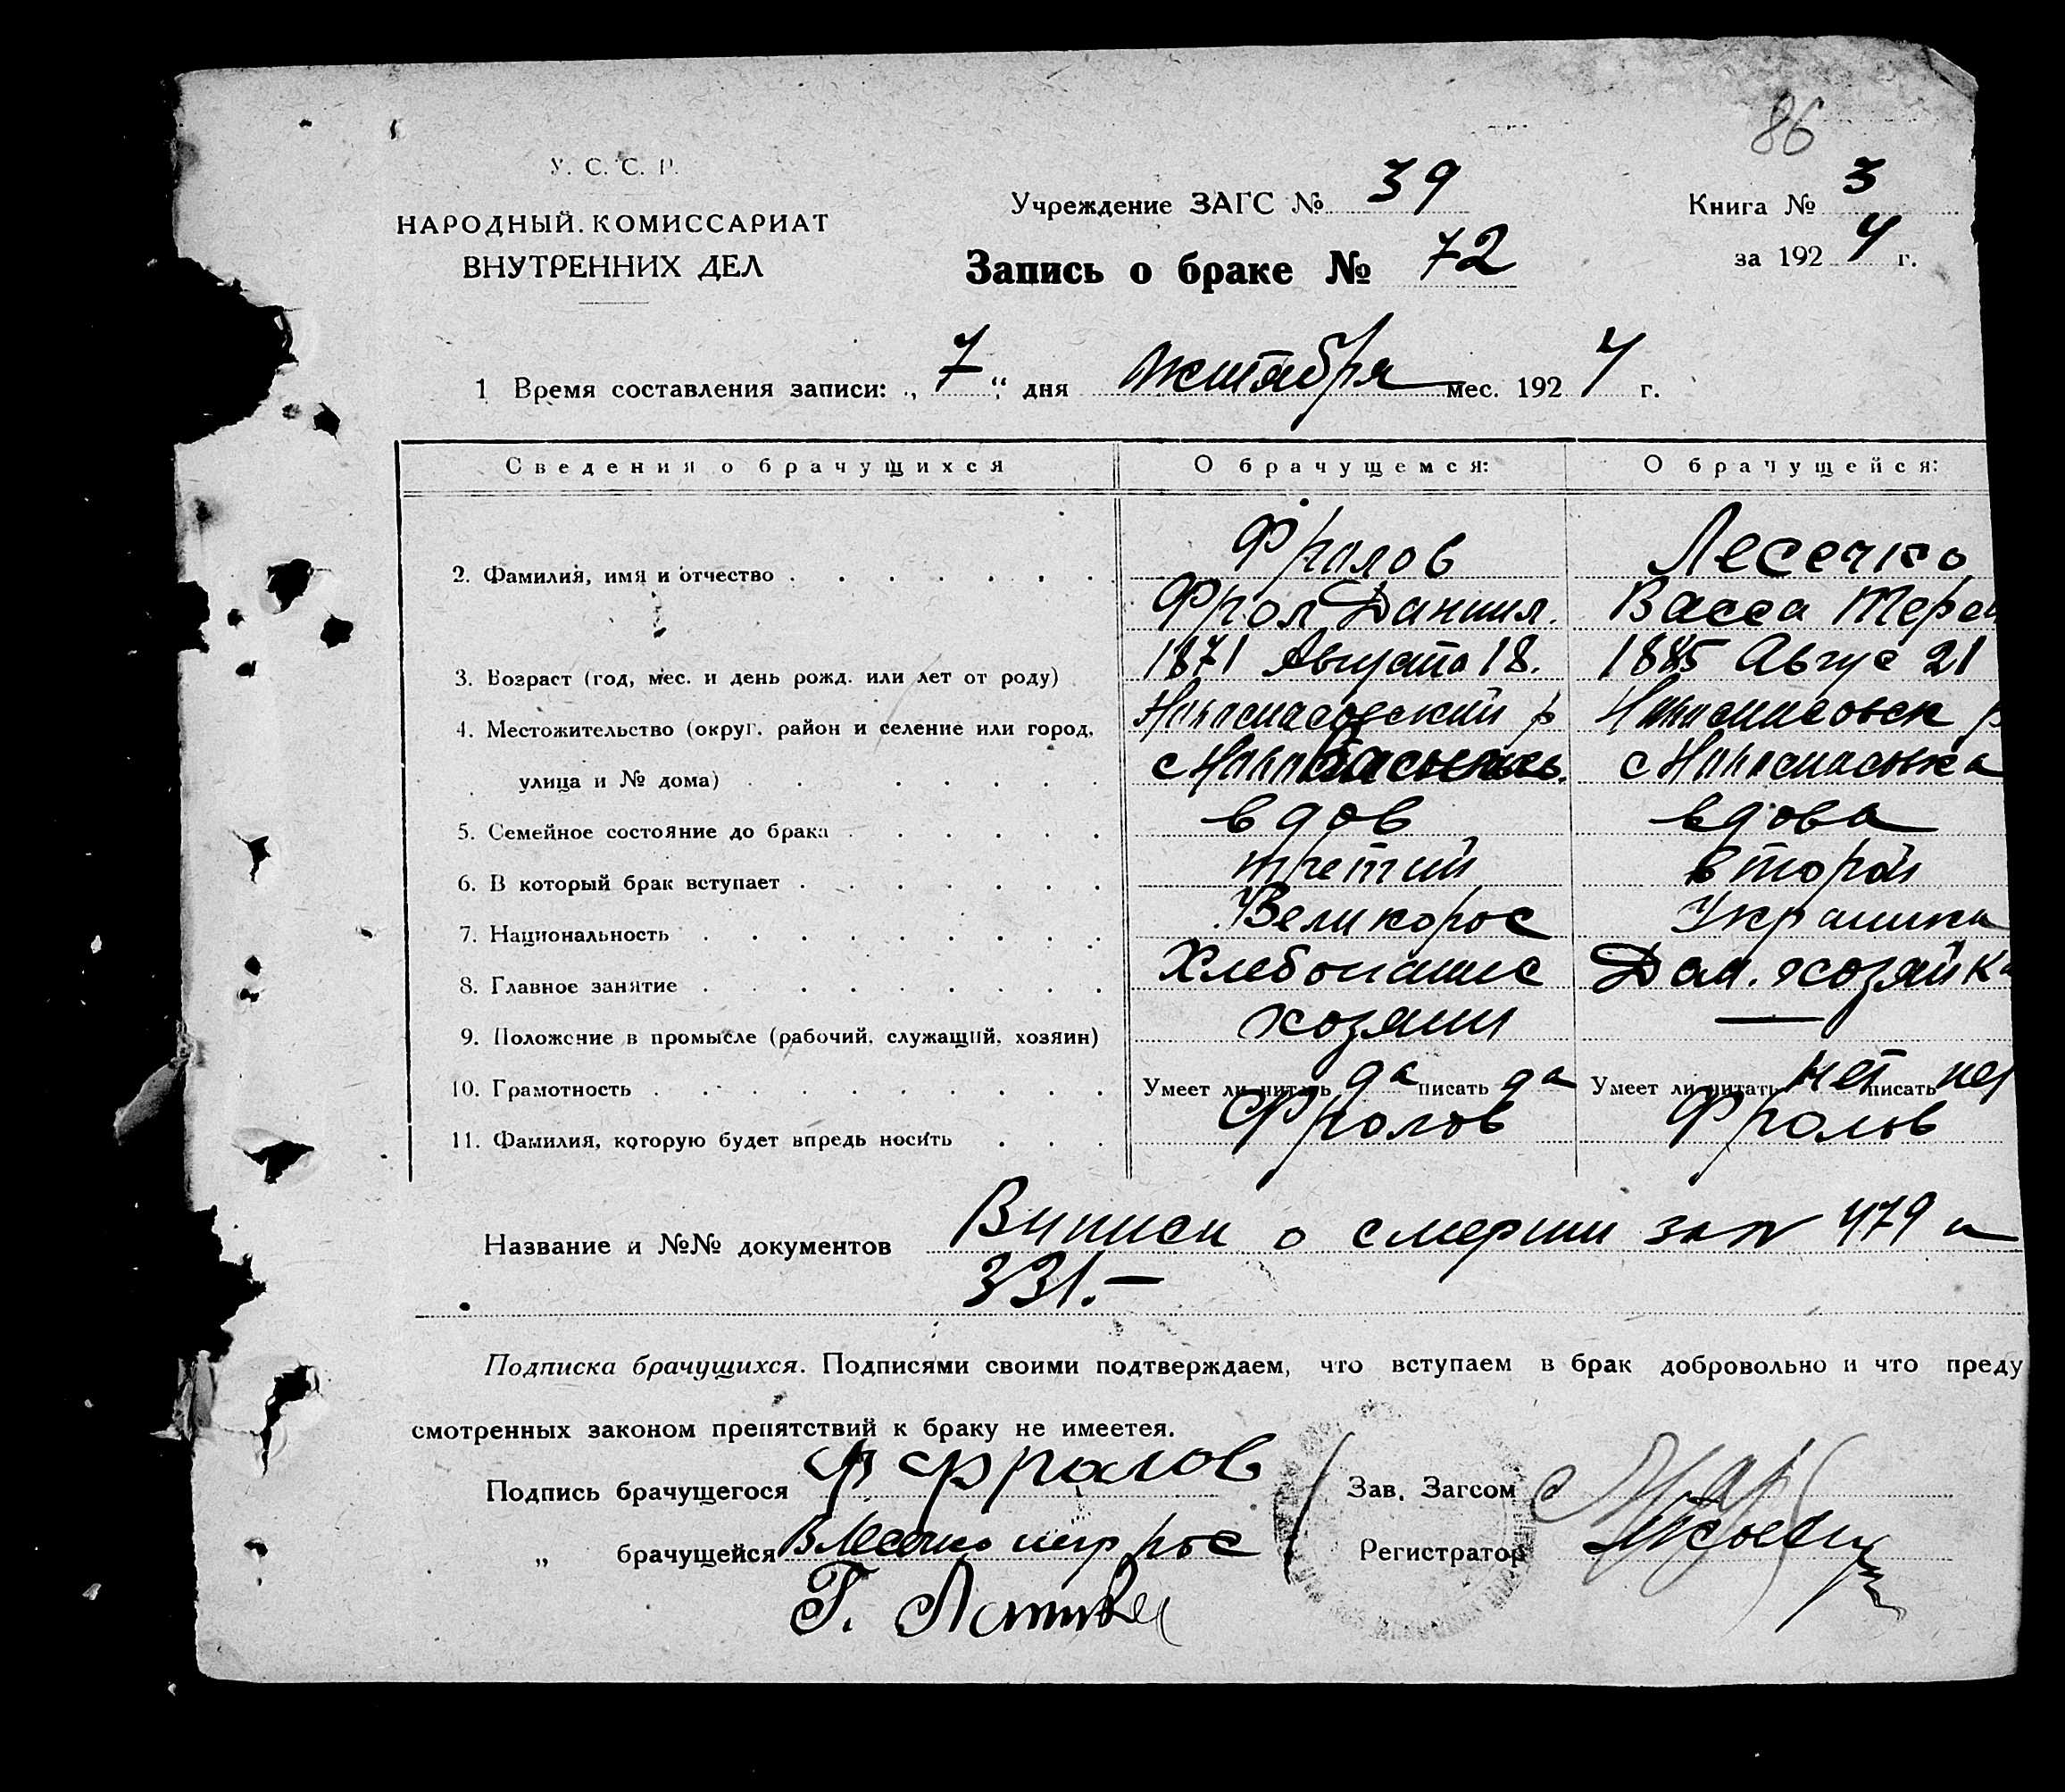 86
У. С. С. Р.
НАРОДНЫЙ КОМИССАРИАТ
ВНУТРЕННИХ ДЕЛ
Учреждение ЗАГС № 39
Книга № 3
за 1924 г.
Запись о браке № 72
1 Время составления записи: „7“ дня октября мес. 1924 г.
Сведения о брачущихся О брачущемся: О брачущейся:
2. Фамилия, имя и отчество Фролов Лесечко
Фрол Данил. Васса Терен
3. Возраст (год, мес. и день рожд. или лет от роду) 1871 Августа 18. 1885 Авгус 21
4. Местожительство (округ, район и селение или город, р р
улица и № дома) с с
5. Семейное состояние до брака вдов вдова
6. В который брак вступает третий второй
7. Национальность Великорос Украинка
8. Главное занятие Хлебопашес Дом. хозяйка
9. Положение в промысле (рабочий, служащий, хозяин) хозяин —
10. Грамотность Умеет ли читать да писать да Умеет ли читать нет писать нет
11. Фамилия, которую будет впредь носить Фролов Фролов
Название и №№ документов Виписи о смерти зап 479 и
331.—
Подписка брачущихся. Подписями своими подтверждаем, что вступаем в брак добровольно и что преду
смотренных законом препятствий к браку не имеется.
Подпись брачущегося Ф Фролов
Зав. Загсом
„ брачущейся
Регистратор
Г.